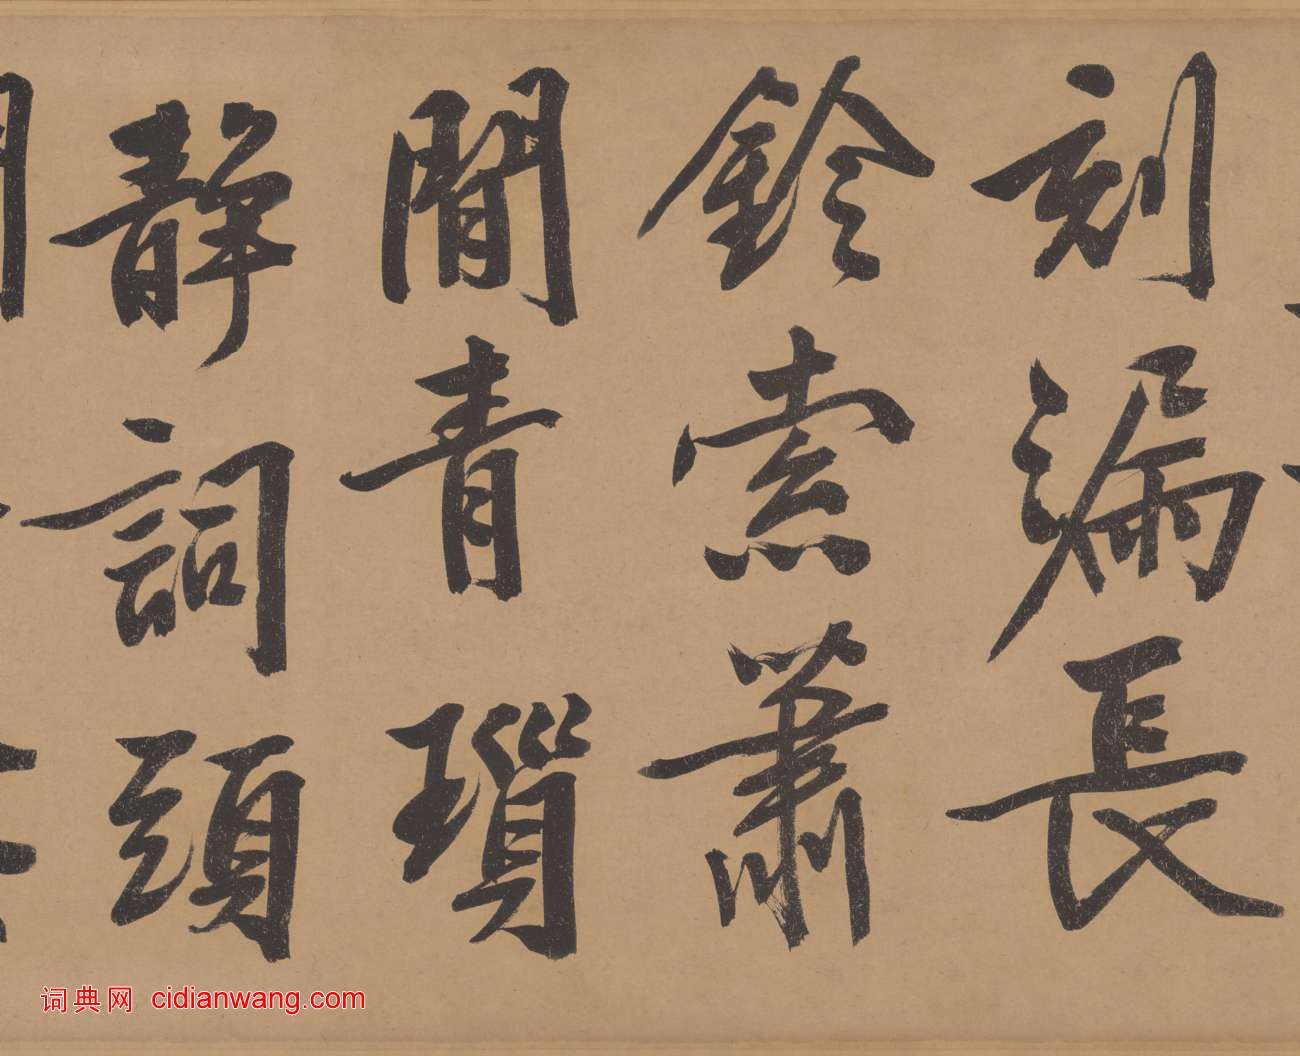 刻漏長
鈴索蕭
閒青瑣
靜詞頭
词典网 cidianwang.com